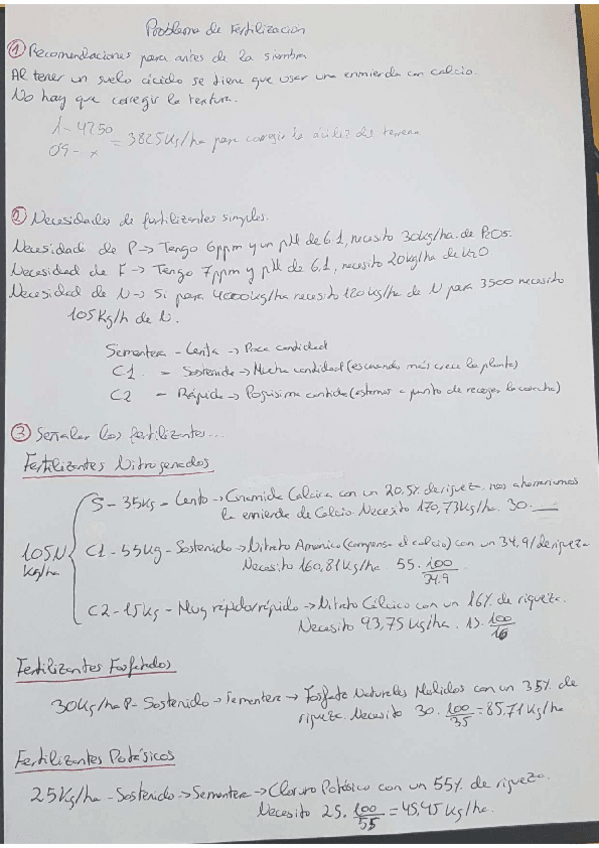 Problema de Fertilización
① Recomendaciones para antes de la siembra
Al tener un suelo ácido se tiene que usar una enmienda con calcio.
No hay que corregir la textura.
1 - 4250
0,9 - x = 3825 Kg/ha para corregir la acidez del terreno
② Necesidades de fertilizantes simples.
Necesidad de P → Tengo 6ppm y un pH de 6.1, necesito 30kg/ha. de P2O5.
Necesidad de K → Tengo 7ppm y pH de 6.1, necesito 20kg/ha de K2O
Necesidad de N → Si para 4000kg/ha necesito 120kg/ha de N para 3500 necesito
105 Kg/h de N.
Sementera - Lenta → Poca cantidad
C1 - Sostenida → Mucha cantidad (es cuando más crece la planta)
C2 - Rápida → Poquísima cantidad (estamos a punto de recoger la cosecha)
③ Señalar los fertilizantes...
Fertilizantes Nitrogenados
105 N Kg/ha
S - 35Kg - Lento → Cianamida Cálcica con un 20.5% de riqueza nos ahorraríamos
la enmienda de Calcio. Necesito 170,73Kg/ha. 30.
C1 - 55Kg - Sostenido → Nitrato Amónico (compensa el calcio) con un 34,9% de riqueza
Necesito 160,81Kg/ha 55. 100/34.9
C2 - 15Kg - Muy rápido/rápido → Nitrato Cálcico con un 16% de riqueza.
Necesito 93,75 Kg/ha. 15. 100/16
Fertilizantes Fosfatados
30Kg/ha P - Sostenido → Sementera → Fosfato Naturales Molidos con un 35% de
riqueza. Necesito 30. 100/35 = 85,71 Kg/ha
Fertilizantes Potásicos
25Kg/ha - Sostenido → Sementera → Cloruro Potásico con un 55% de riqueza.
Necesito 25. 100/55 = 45,45 Kg/ha.